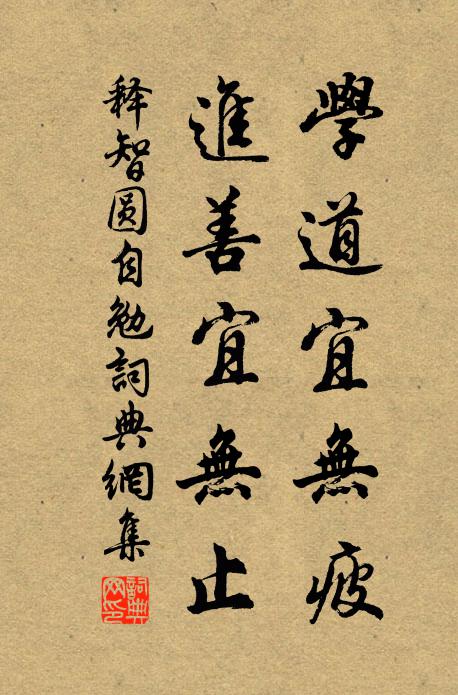 學道宜無疲
進善宜無止
释智圆自勉詞典網集
詞典網印